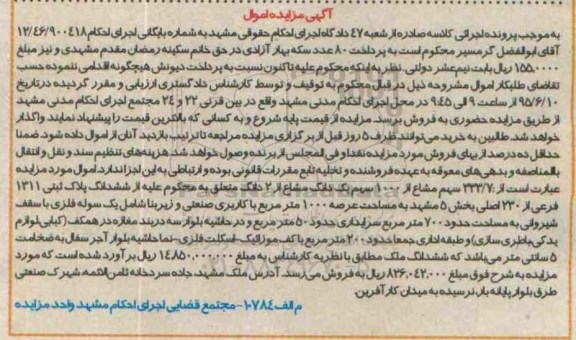 آگهی مزایده اموال
به موجب پرونده اجرائی کلاسه صادره از شعبه ۴۷ دادگاه اجرای احکام حقوقی مشهد به شماره بایگانی اجرای احکام ۱۲/۴۶/۹۰۰۴۱۸
آقای ابوالفضل گرمسیر محکوم است به پرداخت ۸۰ عدد سکه بهار آزادی در حق خانم سکینه رمضان مقدم مشهدی و نیز مبلغ
۱۵۵.۰۰۰۰ ریال بابت نیم عشر دولتی. نظر به اینکه محکوم علیه تاکنون نسبت به پرداخت دیونش هیچگونه اقدامی ننموده حسب
تقاضای طلبکار اموال مشروحه ذیل در قبال محکوم به توقیف و توسط کارشناس دادگستری ارزیابی و مقرر گردیده در تاریخ
۹۵/۶/۱۰ از ساعت ۹ الی ۹:۴۵ در محل اجرای احکام مدنی مشهد واقع در بین قرنی ۲۲ و ۲۴ مجتمع اجرای احکام مدنی مشهد
از طریق مزایده حضوری به فروش برسد. مزایده از قیمت پایه شروع و به کسانی که بالاترین قیمت را پیشنهاد نمایند واگذار
خواهد شد. طالبین به خرید می‌توانند ظرف ۵ روز قبل از برگزاری مزایده مراجعه تا ترتیب بازدید آنان از اموال داده شود. ضمنا
حداقل ده درصد از بهای فروش مورد مزایده نقدا و فی المجلس از برنده وصول خواهد شد. هزینه‌های تنظیم سند و نقل و انتقال
بالمناصفه و بدهی‌های معوقه به عهده فروشنده و تخلیه تابع مقررات قانونی بوده و ارتباطی به این اجرا ندارد. اموال مورد مزایده
عبارت است از: ۳۳۳/۷ سهم مشاع از ۱۰۰۰ سهم یک دانگ مشاع از ۲ دانگ متعلق به محکوم علیه از ششدانگ پلاک ثبتی ۱۳۱۱
فرعی از ۲۳۰ اصلی بخش ۵ مشهد به مساحت عرصه ۱۰۰۰ متر مربع با کاربری صنعتی و زیربنا شامل یک سوله فلزی با سقف
شیروانی به مساحت حدود ۷۰۰ متر مربع سرایداری حدود ۵۰ متر مربع و در حاشیه بلوار سه دربند مغازه در همکف (کبابی لوازم
یدکی باطری سازی) و طبقه اداری جمعا حدود ۲۰۰ متر مربع با کف موزائیک-اسکلت فلزی-نما حاشیه بلوار آجر سفال به ضخامت
۵ سانتی متر می‌باشد که ششدانگ ملک مطابق با نظریه کارشناس به مبلغ ۱۴.۸۵۰.۰۰۰.۰۰۰ ریال برآورد شده است که مورد
مزایده به شرح فوق مبلغ ۸۲۶.۰۴۲.۰۰۰ ریال به فروش می‌رسد. آدرس ملک مشهد، جاده سردخانه ثامن الائمه شهرک صنعتی
طرق بلوار پایانه بار، نرسیده به میدان کارآفرین.
م الف ۱۰۷۸۴-مجتمع قضایی اجرای احکام مشهد واحد مزایده